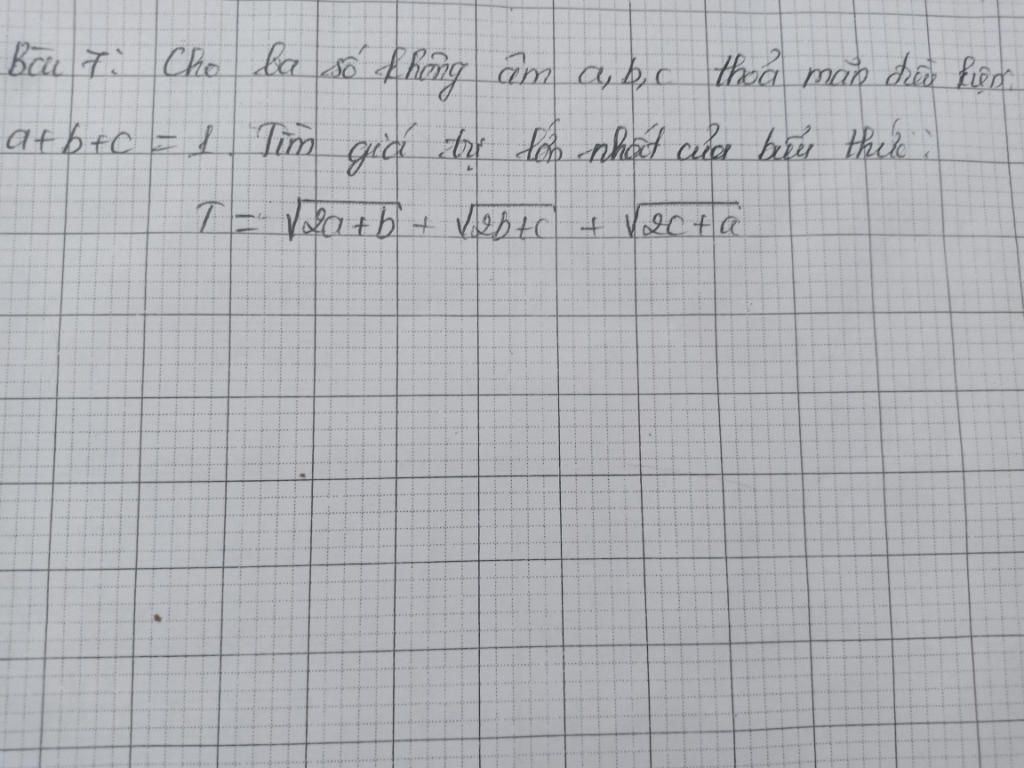 Bài 7: Cho ba số không âm a, b, c thoả mãn điều kiện.
a+b+c = 1. Tìm giá trị lớn nhất của biểu thức:
T = √(2a+b) + √(2b+c) + √(2c+a)